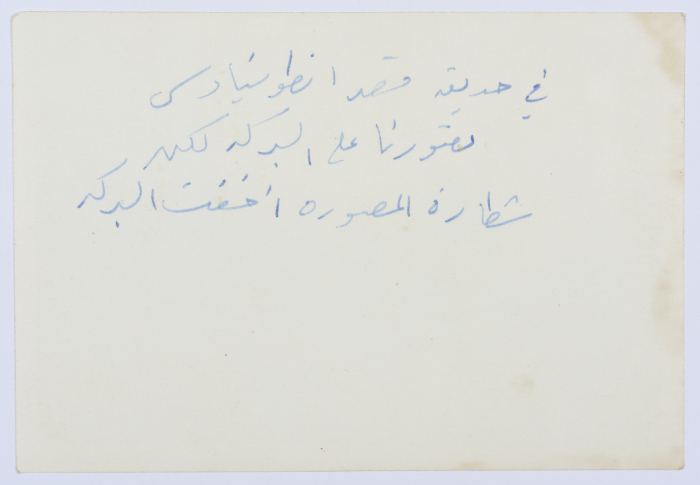 في حديقه قصر انطونيادس
تصورنا على البركه لكن
شطارة المصوره اخفت البركه